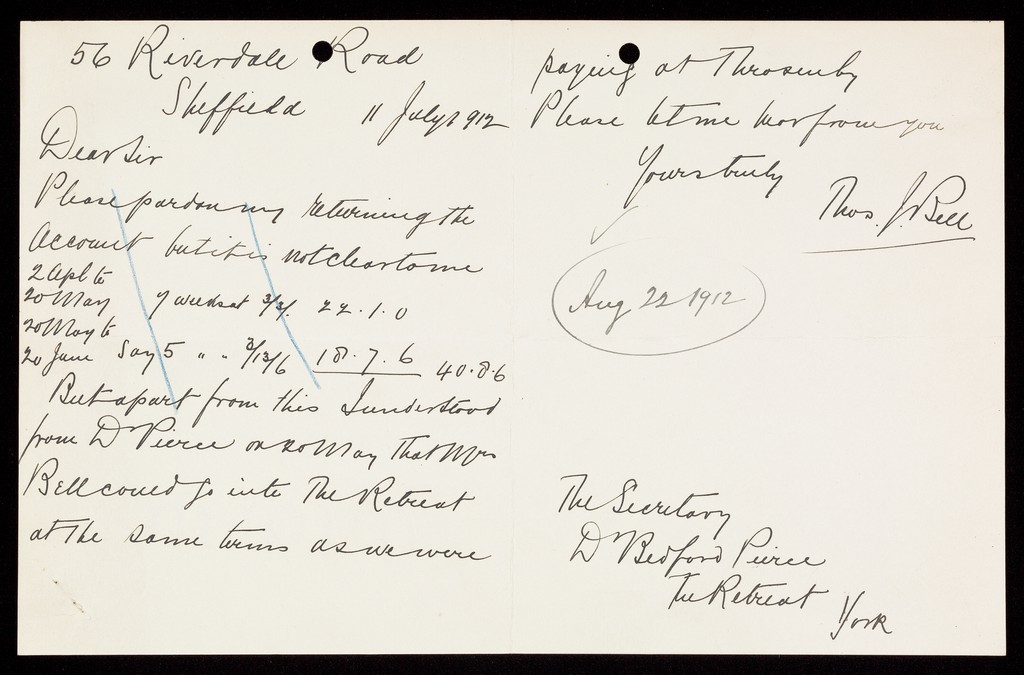 56 Riverdale Road
Sheffield 11 July 1912
Dear Sir
Please pardon my returning the
Account but it is not clear to me
2 Apl to
20 May 7 weeks at 3/3/. 22.1.0
20 May to
20 June Say 5 " " 3/13/6 18.7.6 40.8.6
But apart from this I understood
from Dr Pierce on 20 May that Mrs
Bell could go into The Retreat
at the same terms as we were
paying at Throxenby
Please let me hear from you
Yours truly
Thos. J. Bell
Aug 22 1912
The Secretary
Dr Bedford Pierce
The Retreat
York